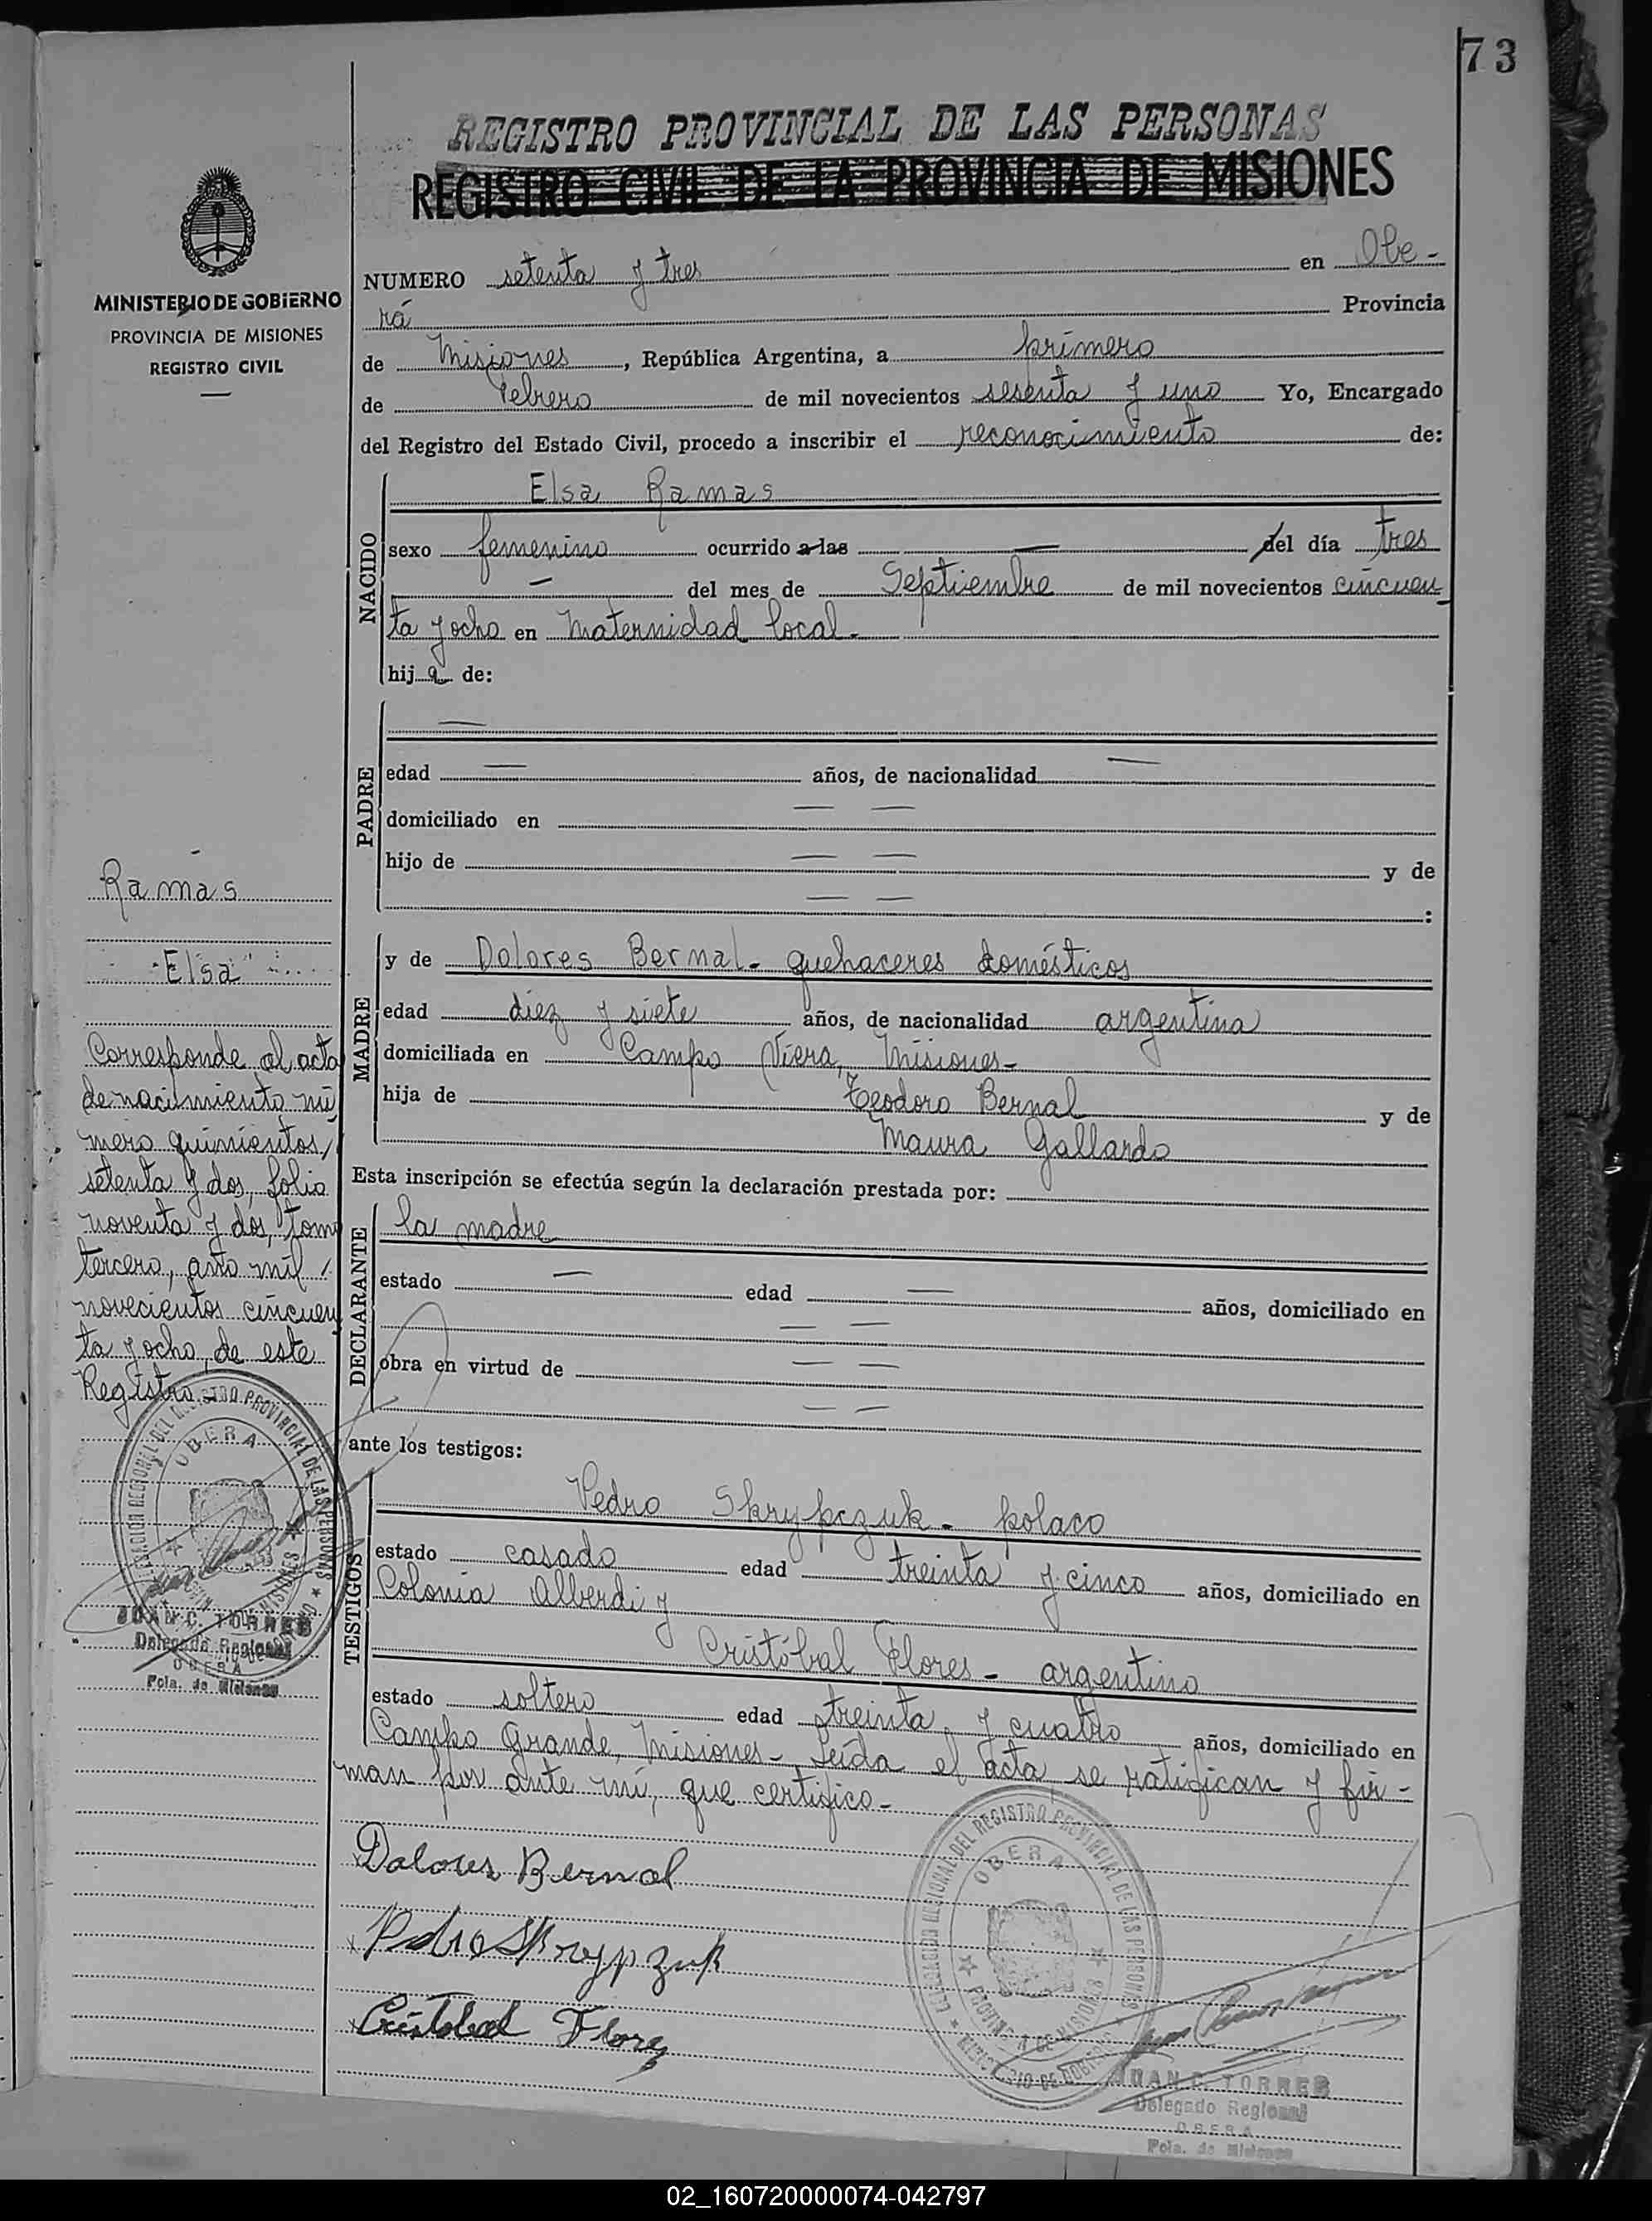 73
REGISTRO PROVINCIAL DE LAS PERSONAS
REGISTRO CIVIL DE LA PROVINCIA DE MISIONES
MINISTERIO DE GOBIERNO
PROVINCIA DE MISIONES
REGISTRO CIVIL
NUMERO setenta y tres en Obe-
rá Provincia
de Misiones, República Argentina, a primero
de Febrero de mil novecientos sesenta y uno Yo, Encargado
del Registro del Estado Civil, procedo a inscribir el reconocimiento de:
NACIDO
Elsa Ramas
sexo femenino ocurrido a las — del día tres
— del mes de Septiembre de mil novecientos cincuen
ta y ocho en Maternidad local.-
hij a de:
PADRE
—
edad — años, de nacionalidad —
domiciliado en — —
hijo de — — y de
— — :
Ramas
Elsa
Corresponde al acta
de nacimiento nú
mero quinientos,
setenta y dos, folio
noventa y dos, tomo
tercero, año mil
novecientos cincuen
ta y ocho, de este
Registro
MADRE
y de Dolores Bernal.- quehaceres domésticos
edad diez y siete años, de nacionalidad argentina
domiciliada en Campo Viera, Misiones-
hija de Teodoro Bernal y de
Maura Gallardo
Esta inscripción se efectúa según la declaración prestada por:
DECLARANTE
la madre
estado — edad — años, domiciliado en
— —
obra en virtud de — —
— —
ante los testigos:
TESTIGOS
Pedro Skrypczuk- polaco
estado casado edad treinta y cinco años, domiciliado en
Colonia Alberdi y
Cristóbal Flores- argentino
estado soltero edad treinta y cuatro años, domiciliado en
Campo Grande, Misiones- Leída el acta se ratifican y fir-
man por ante mí, que certifico-
Dolores Bernal
Pedro Skrypczuk
Cristobal Flores
DELEGACION REGIONAL DEL REGISTRO PROVINCIAL DE LAS PERSONAS
OBERA
PROVINCIA DE MISIONES
MINISTERIO DE GOBIERNO
JUAN C. TORRES
Delegado Regional
OBERA
Pcia. de Misiones
DELEGACION REGIONAL DEL REGISTRO PROVINCIAL DE LAS PERSONAS
OBERA
PROVINCIA DE MISIONES
MINISTERIO DE GOBIERNO
JUAN C. TORRES
Delegado Regional
OBERA
Pcia. de Misiones
02_160720000074-042797